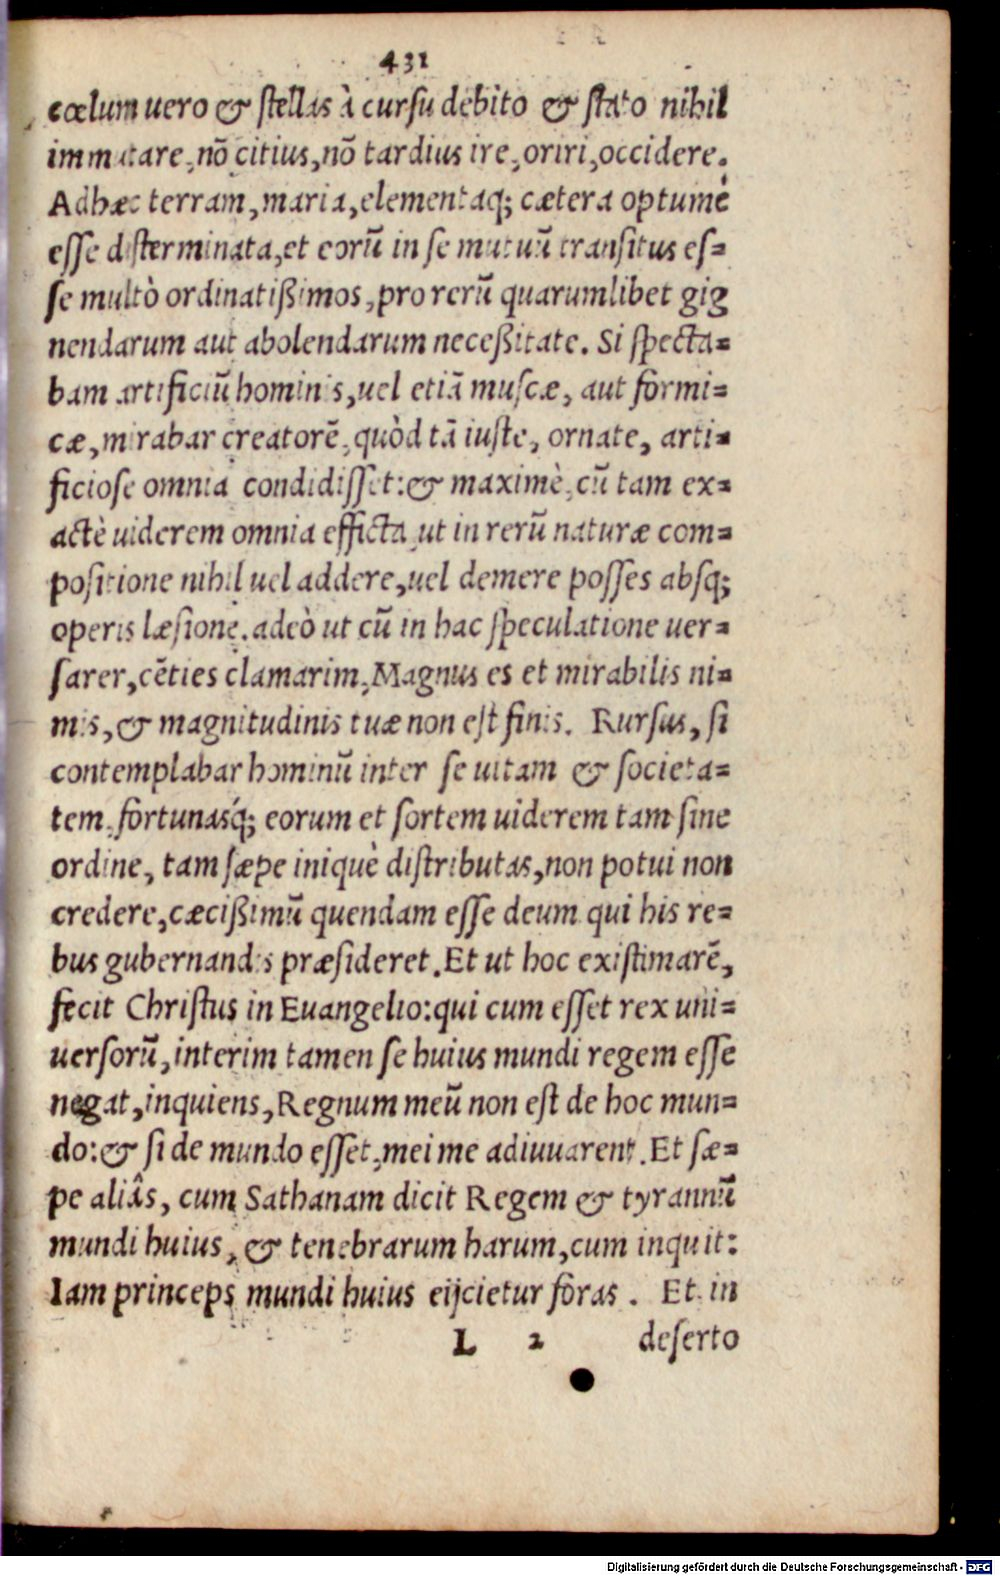 431
cœlum uero & ſtellas à curſu debito & ſtato nihil
immutare, nō citius, nō tardius ire, oriri, occidere.
Adhæc terram, maria, elementaq; cætera optumè
eſſe diſterminata, et eorū in ſe mutuū tranſitus eſ=
ſe multò ordinatißimos, pro rerū quarumlibet gig
nendarum aut abolendarum neceßitate. Si ſpecta=
bam artificiū hominis, uel etiā muſcæ, aut formi=
cæ, mirabar creatorē, quòd tā iuſte, ornate, arti=
ficioſe omnia condidiſſet: & maximè, cū tam ex=
actè uiderem omnia efficta, ut in rerū naturæ com=
poſitione nihil uel addere, uel demere poſſes abſq;
operis læſione. adeò ut cū in hac ſpeculatione uer=
ſarer, cēties clamarim, Magnus es et mirabilis ni=
mis, & magnitudinis tuæ non eſt finis. Rurſus, ſi
contemplabar hominū inter ſe uitam & ſocieta=
tem, fortunasq́; eorum et ſortem uiderem tam ſine
ordine, tam ſæpe iniquè diſtributas, non potui non
credere, cæcißimū quendam eſſe deum qui his re=
bus gubernandis præſideret. Et ut hoc exiſtimarē,
fecit Chriſtus in Euangelio: qui cum eſſet rex uni=
uerſorū, interim tamen ſe huius mundi regem eſſe
negat, inquiens, Regnum meū non eſt de hoc mun=
do: & ſi de mundo eſſet, mei me adiuuarent. Et ſæ=
pe aliâs, cum Sathanam dicit Regem & tyrannū
mundi huius, & tenebrarum harum, cum inquit:
Iam princeps mundi huius eijcietur foras. Et in
L 2 deſerto
Digitalisierung gefördert durch die Deutsche Forschungsgemeinschaft - DFG